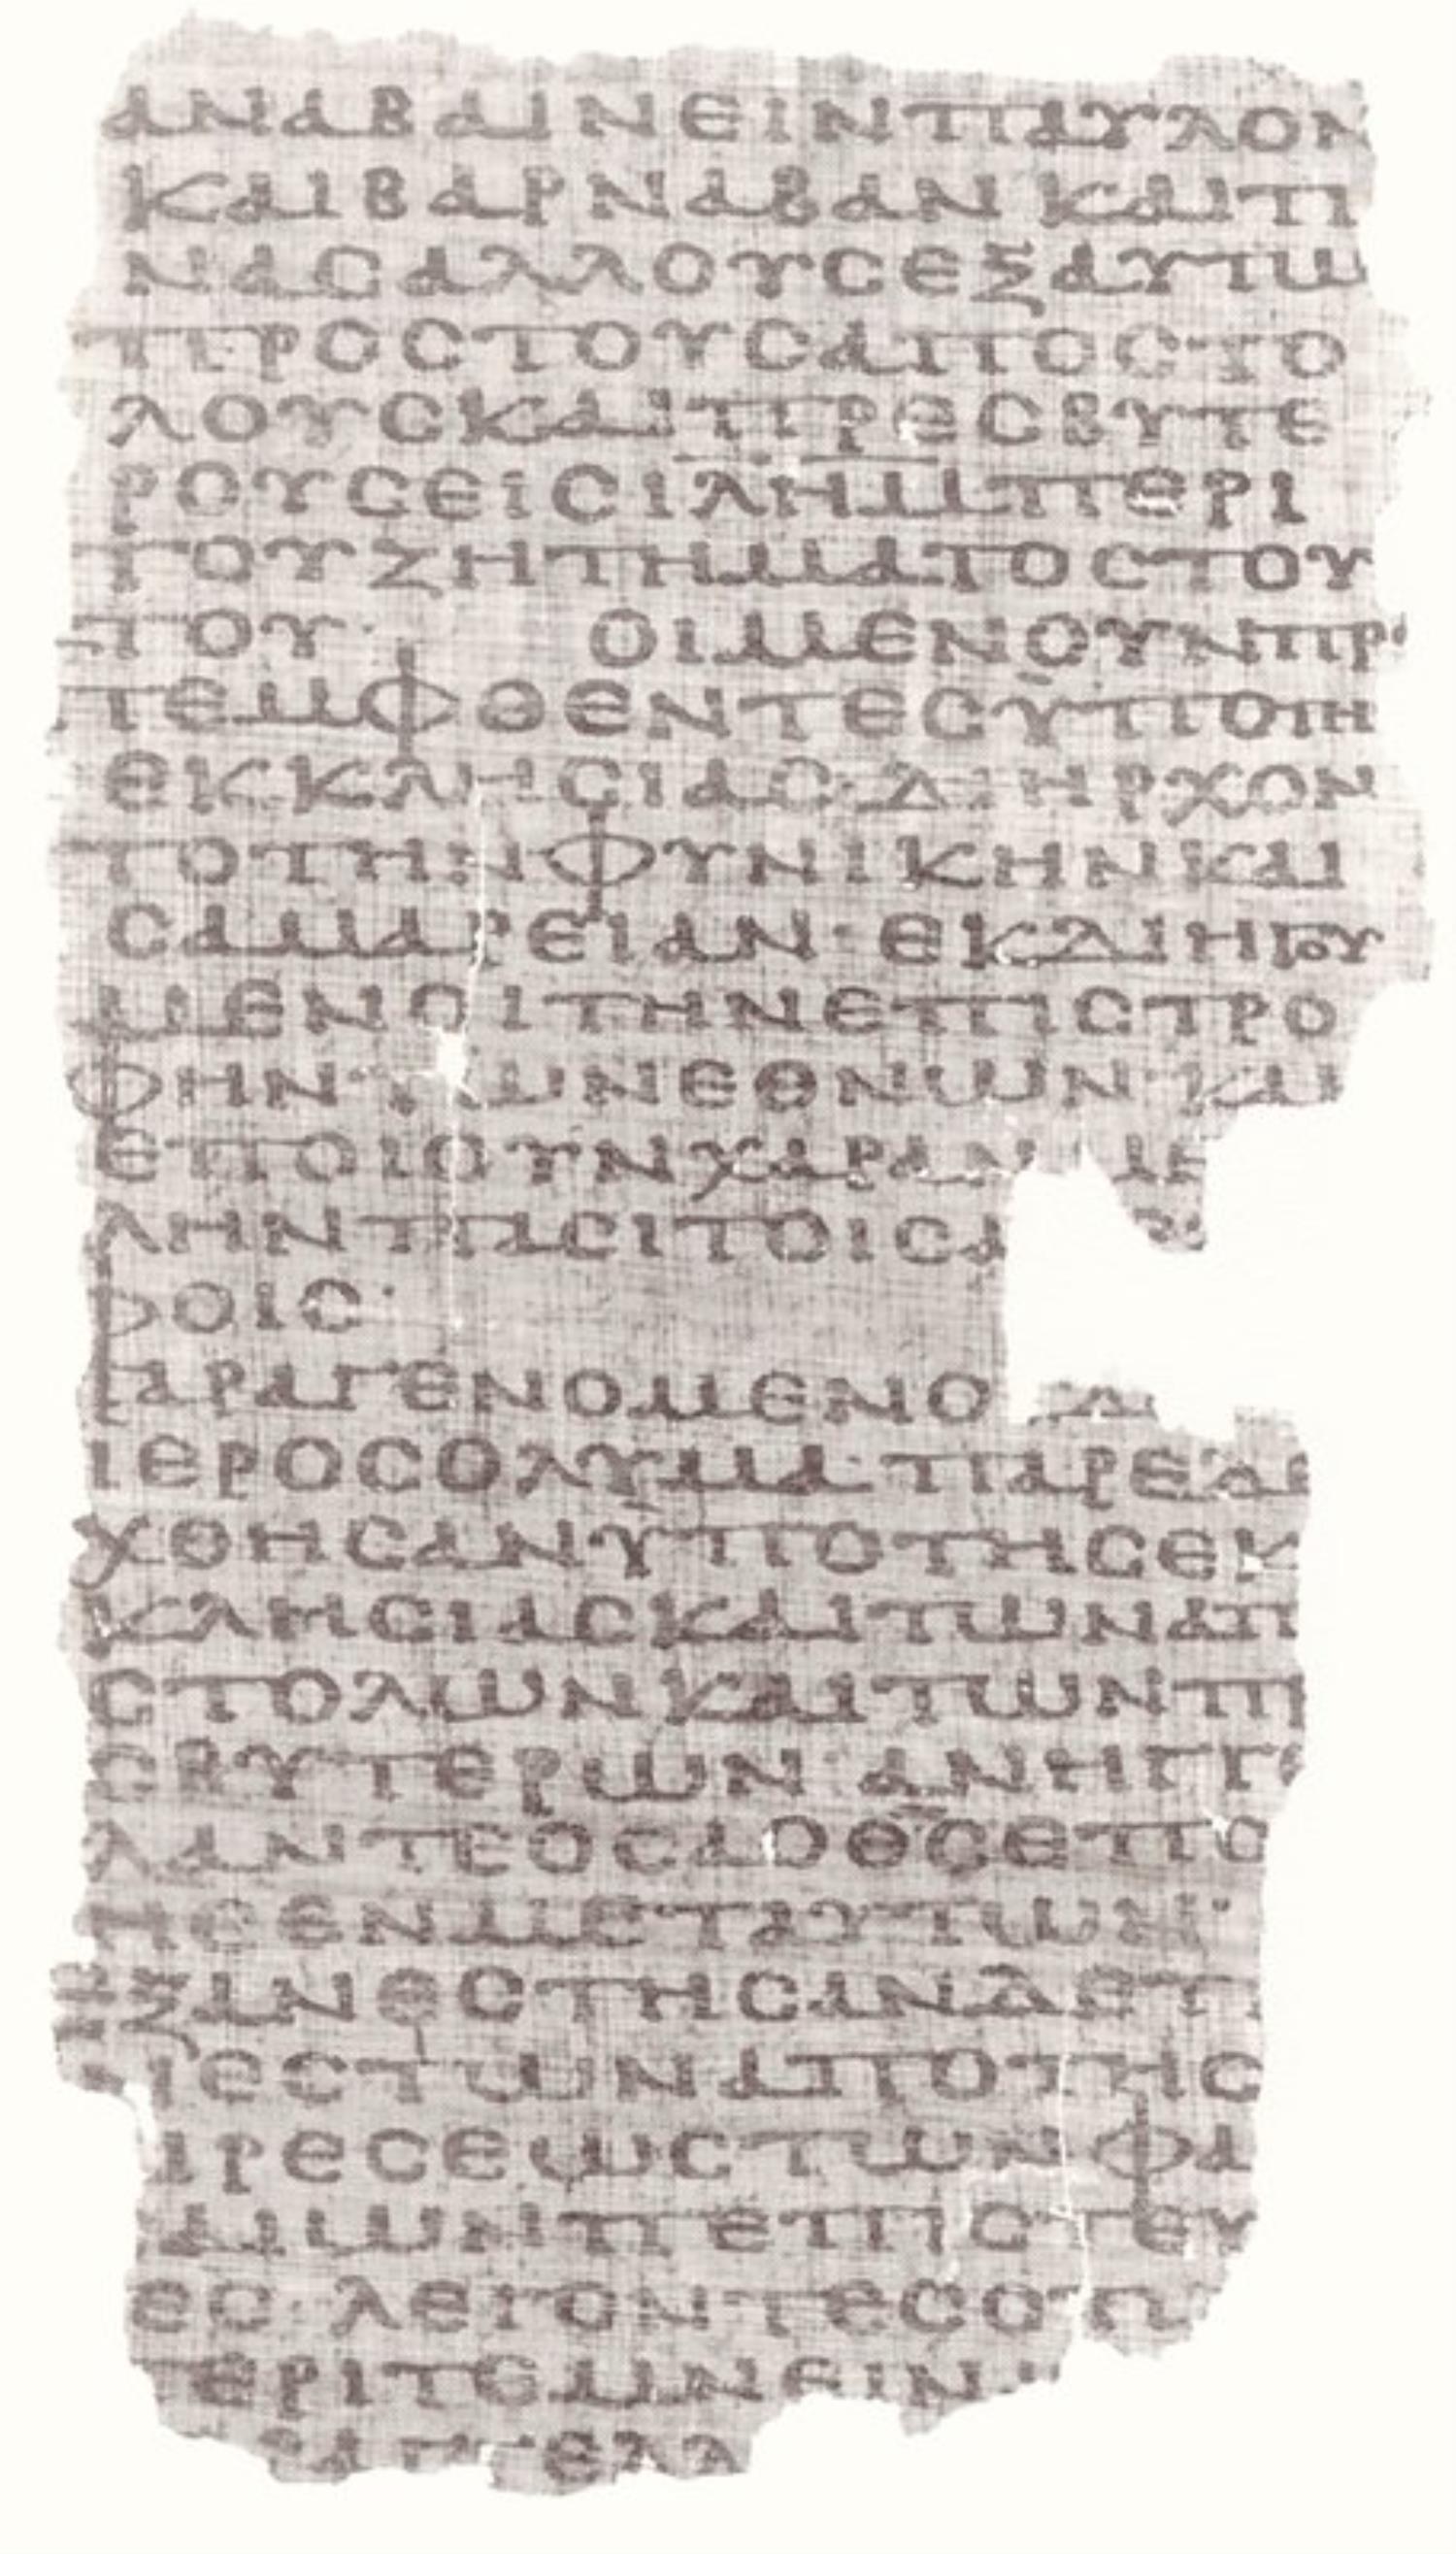 ΑΝΑΒΑΙΝΕΙΝΠΑΥΛΟΝ
ΚΑΙΒΑΡΝΑΒΑΝ ΚΑΙΤΙ
ΝΑCΑΛΛΟΥCΕΞΑΥΤΩ
ΠΡΟCΤΟΥCΑΠΟCΤΟ
ΛΟΥCΚΑΙΠΡΕCΒΥΤΕ
ΡΟΥCΕΙCΙΛΗΜΠΕΡΙ
ΤΟΥΖΗΤΗΜΑΤΟCΤΟΥ
ΤΟΥ· ΟΙΜΕΝΟΥΝΠΡΟ
ΠΕΜΦΘΕΝΤΕCΫΠΟΤΗ
ΕΚΚΛΗCΙΑC·ΔΙΗΡΧΟΝ
ΤΟΤΗΝΦΥΝΙΚΗΝΚΑΙ
CΑΜΑΡΕΙΑΝ· ΕΚΔΙΗΓΟΥ
ΜΕΝΟΙΤΗΝΕΠΙCΤΡΟ
ΦΗΝ ΤΩΝΕΘΝΩΝ·ΚΑΙ
ΕΠΟΙΟΥΝΧΑΡΑΝ ΜΕ
ΛΗΝΠΑCΙΤΟΙCΑ
ΦΟΙC·
ΠΑΡΑΓΕΝΟΜΕΝΟ Δ
ΙΕΡΟCΟΛΥΜΑ·ΠΑΡΕΔΕ
ΧΘΗCΑΝΫΠΟΤΗCΕΚ
ΚΛΗCΙΑCΚΑΙΤΩΝΑΠ
CΤΟΛΩΝΚΑΙΤΩΝΠΡ
CΒΥΤΕΡΩΝ·ΑΝΗΓΓΕ
ΛΑΝΤΕΟCΑΟΘ̅C̅ΕΠΟ
ΗCΕΝΜΕΤΑΥΤΩΝ·
ΕΞΑΝΕCΤΗCΑΝΔΕΤΙ
ΝΕCΤΩΝΑΠΟΤΗC
ΑΙΡΕCΕΩCΤΩΝΦΑ
CΑΙΩΝΠΕΠΙCΤΕΥ
ΕC·ΛΕΓΟΝΤΕCΟΤΙ
ΠΕΡΙΤΕΜΝΕΙΝ
ΡΑΓΓΕΛΛ